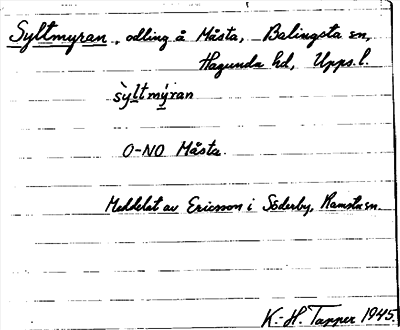 Syltmyran, odling å Måsta, Balingsta sn,
Hagunda hd, Upps. l.
sỳltmýran
O-NO Måsta.
Meddelat av Ericsson i Söderby, Ramsta sn.
K.-H. Tapper 1945.